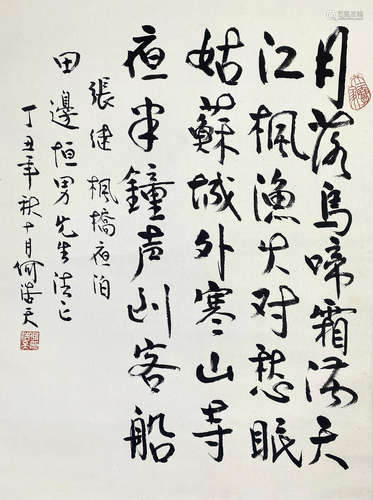 月落烏啼霜满天
江枫漁火对愁眠
姑蘇城外寒山寺
夜半鐘声到客船
張继枫橋夜泊
田邊恒男先生法正
丁丑年秋十月何浩天